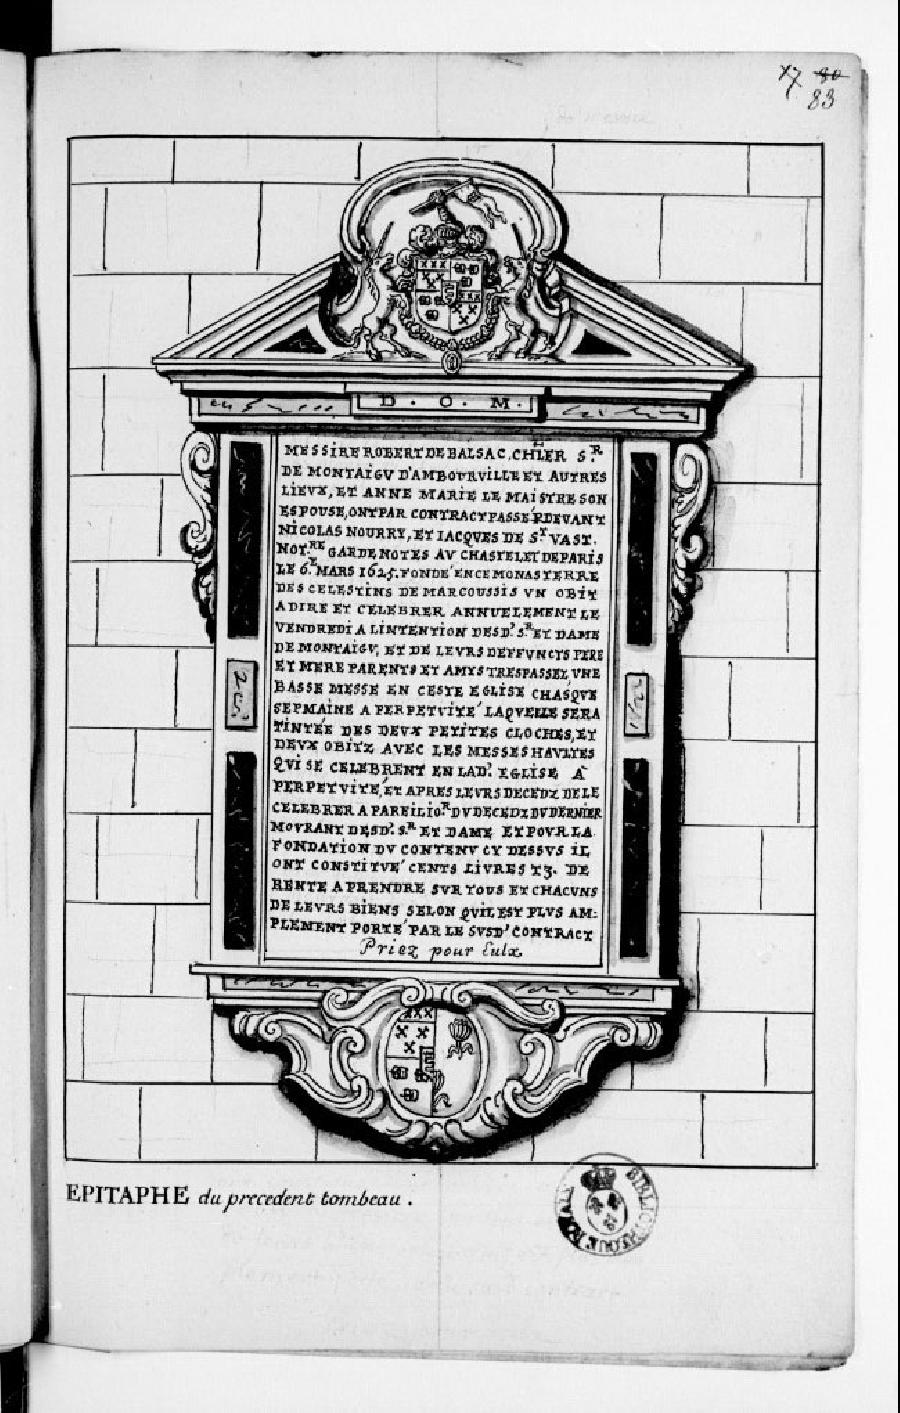 80
83
D. O. M.
MESSIRE ROBERT DE BALSAC, CHLER SR.
DE MONTAIGV D'AMBOVRVILLE ET AUTRES
LIEVX, ET ANNE MARIE LE MAISTRE SON
ESPOUSE, ONT PAR CONTRACT PASSÉ PDEVANT
NICOLAS NOURRY, ET IACQVES DE ST VAST.
NOTRE GARDENOTES AV CHASTELET DE PARIS
LE 6.E MARS 1625. FONDÉ EN CE MONASTERRE
DES CELESTINS DE MARCOUSSIS VN OBIT
A DIRE ET CELEBRER ANNUELEMENT LE
VENDREDI A LINTENTION DESD.' SR ET DAME
DE MONTAIGV, ET DE LEVRS DEFFVNCTS PERE
ET MERE PARENTS ET AMYS TRESPASSEZ, VNE
BASSE MESSE EN CESTE EGLISE CHASQVE
SEPMAINE A PERPETVITÉ LAQVELLE SERA
TINTÉE DES DEVX PETITES CLOCHES, ET
DEVX OBITZ AVEC LES MESSES HAVLTES
QVI SE CELEBRENT EN LAD.' EGLISE A
PERPETVITÉ, ET APRES LEVRS DECEDZ DE LE
CELEBRER A PAREIL IOR DV DECEDZ DV DERNIER
MOVRANT DESD.' SR ET DAME ET POVR LA
FONDATION DV CONTENV CY DESSVS IL
ONT CONSTITVÉ CENTS LIVRES TZ. DE
RENTE A PRENDRE SVR TOUS ET CHACUNS
DE LEVRS BIENS SELON QVIL EST PLVS AM:
PLEMENT PORTÉ PAR LE SVSD.' CONTRACT
Priez pour Eulx
EPITAPHE du precedent tombeau.
BIBLIOTHEQUE ROYALE